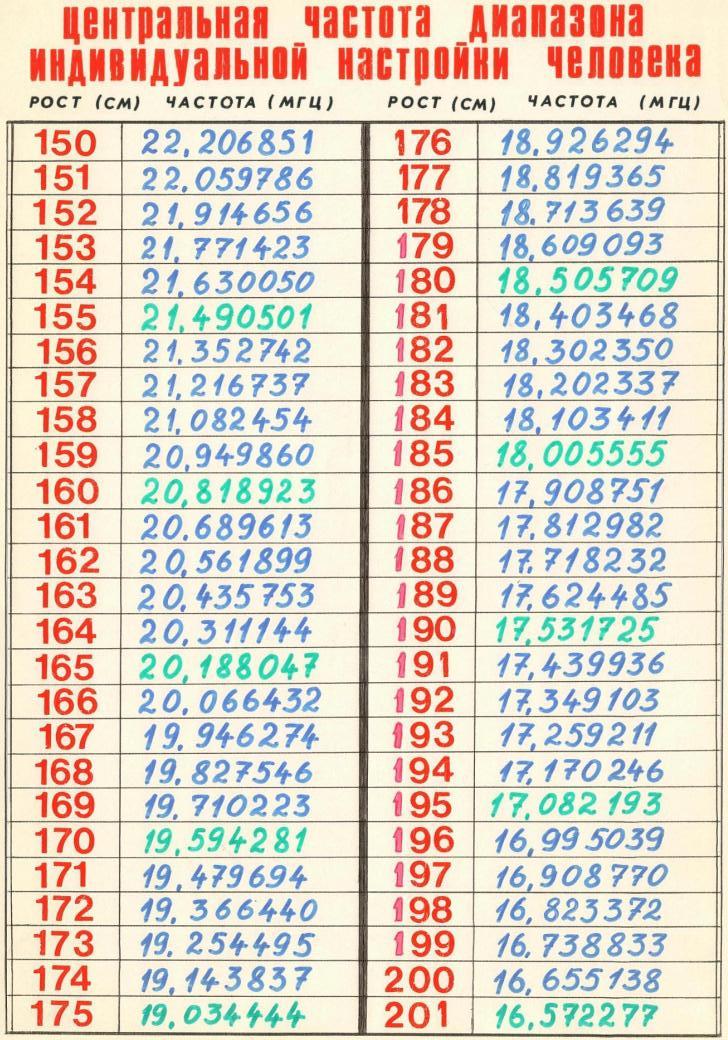 центральная частота диапазона
индивидуальной настройки человека
РОСТ (СМ) ЧАСТОТА (МГЦ) РОСТ (СМ) ЧАСТОТА (МГЦ)
150 22,206851 176 18,926294
151 22,059786 177 18,819365
152 21,914656 178 18.713639
153 21,771423 179 18,609093
154 21,630050 180 18,505709
155 21,490501 181 18,403468
156 21,352742 182 18,302350
157 21,216737 183 18,202337
158 21,082454 184 18,103411
159 20,949860 185 18,005555
160 20,818923 186 17,908751
161 20.689613 187 17,812982
162 20,561899 188 17.718232
163 20,435753 189 17,624485
164 20,311144 190 17,531725
165 20,188047 191 17,439936
166 20,066432 192 17,349103
167 19,946274 193 17,259211
168 19,827546 194 17,170246
169 19,710223 195 17,082193
170 19,594281 196 16,995039
171 19,479694 197 16,908770
172 19,366440 198 16,823372
173 19,254495 199 16,738833
174 19,143837 200 16,655138
175 19,034444 201 16,572277